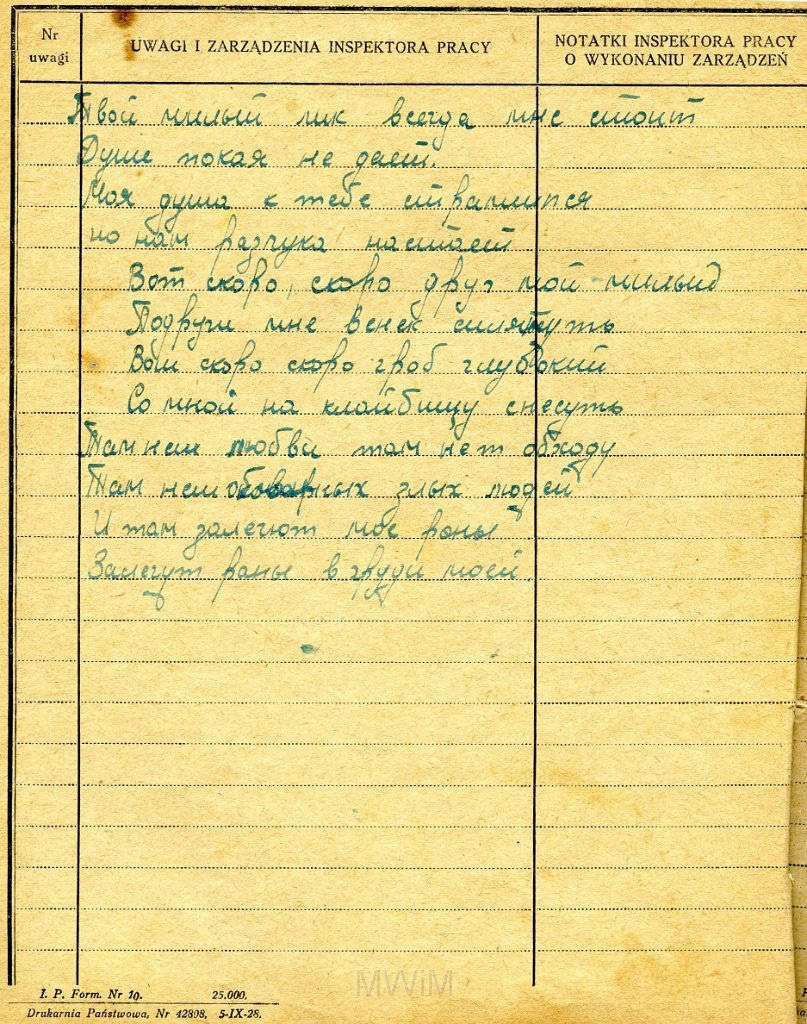 Nr uwagi
UWAGI I ZARZĄDZENIA INSPEKTORA PRACY
NOTATKI INSPEKTORA PRACY
O WYKONANIU ZARZĄDZEŃ
Твой милый лик всегда мне стоит
Душе покая не дает.
Моя душа к тебе страмится
но нам разлука настает
Вот скоро, скоро друг мой милый
Подруги мне венек сплятуть
Вот скоро скоро гроб глубокий
Со мной на клайбищу снесуть
Там нет любви там нет обходу
Там нет коварных злых людей
И там залечют мое раны
Залечут раны в груди моей.
MWiM
I. P. Form. Nr 10. 25.000.
Drukarnia Państwowa, Nr 42808, 5-IX-28.